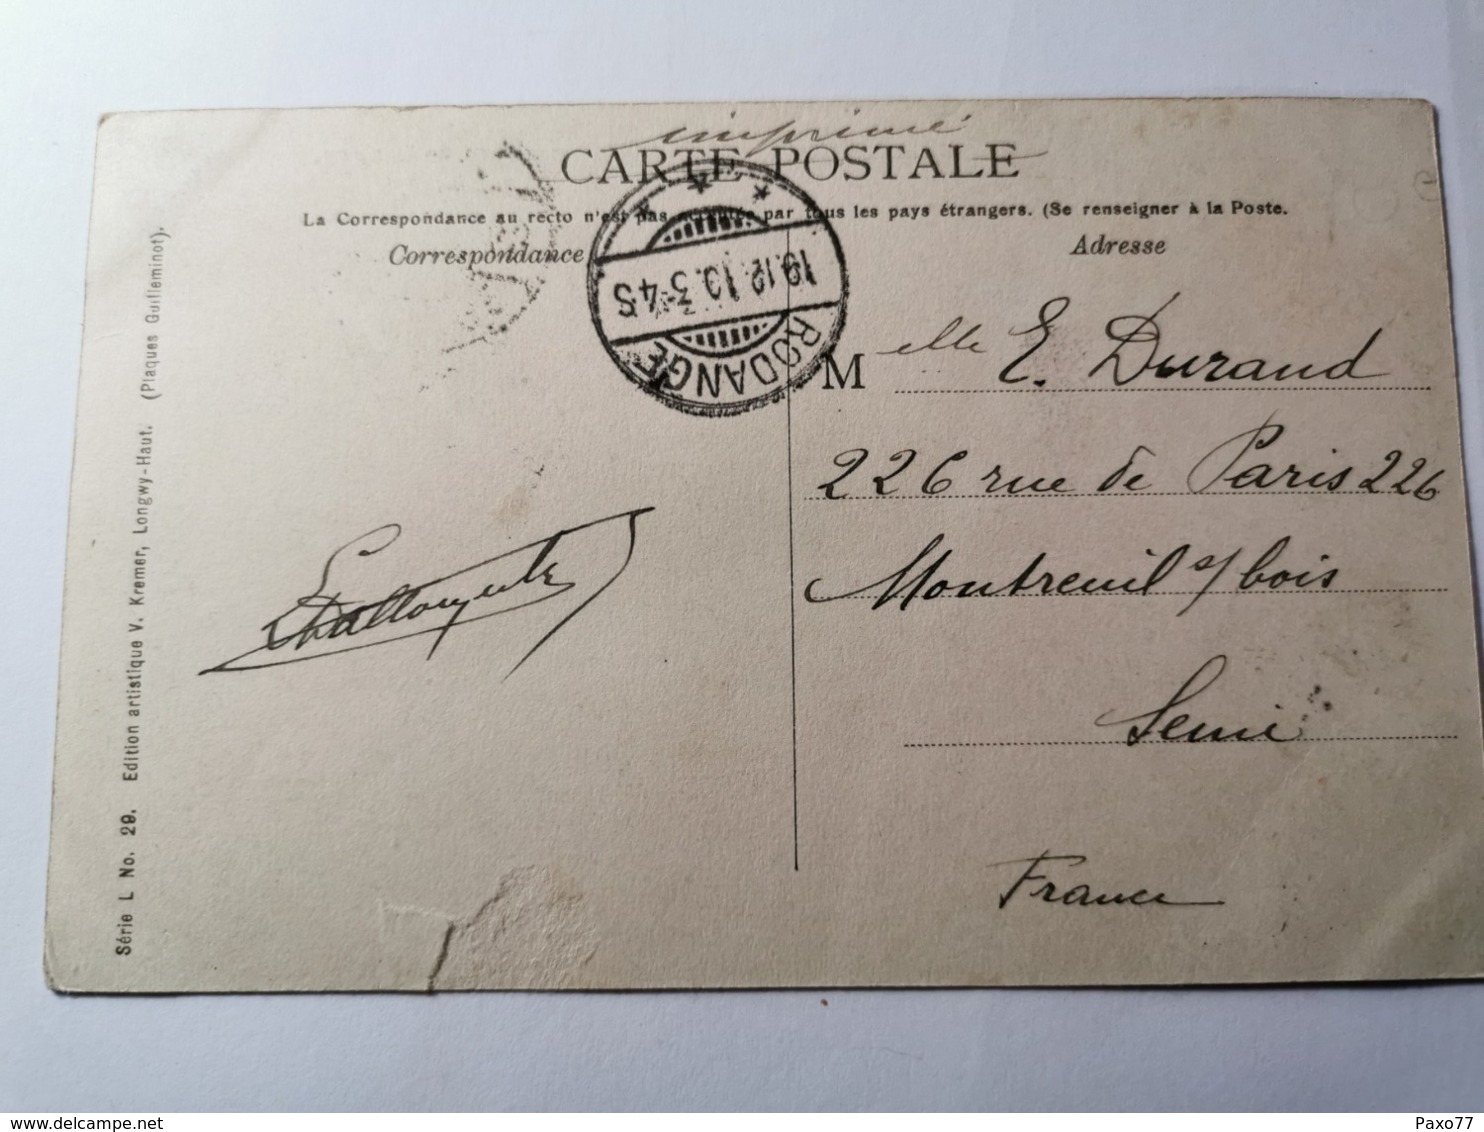 imprimé
CARTE POSTALE
La Correspondance au recto n'est pas acceptée par tous les pays étrangers. (Se renseigner à la Poste.
Correspondance
Adresse
19.12.10.3-4S
RODANGE
Melle E. Durand
226 rue de Paris 226
Montreuil s/ bois
Seine
France
Série L No. 29. Edition artistique V. Kremer, Longwy-Haut. (Plaques Guilleminot).
delcampe.net
Paxo77